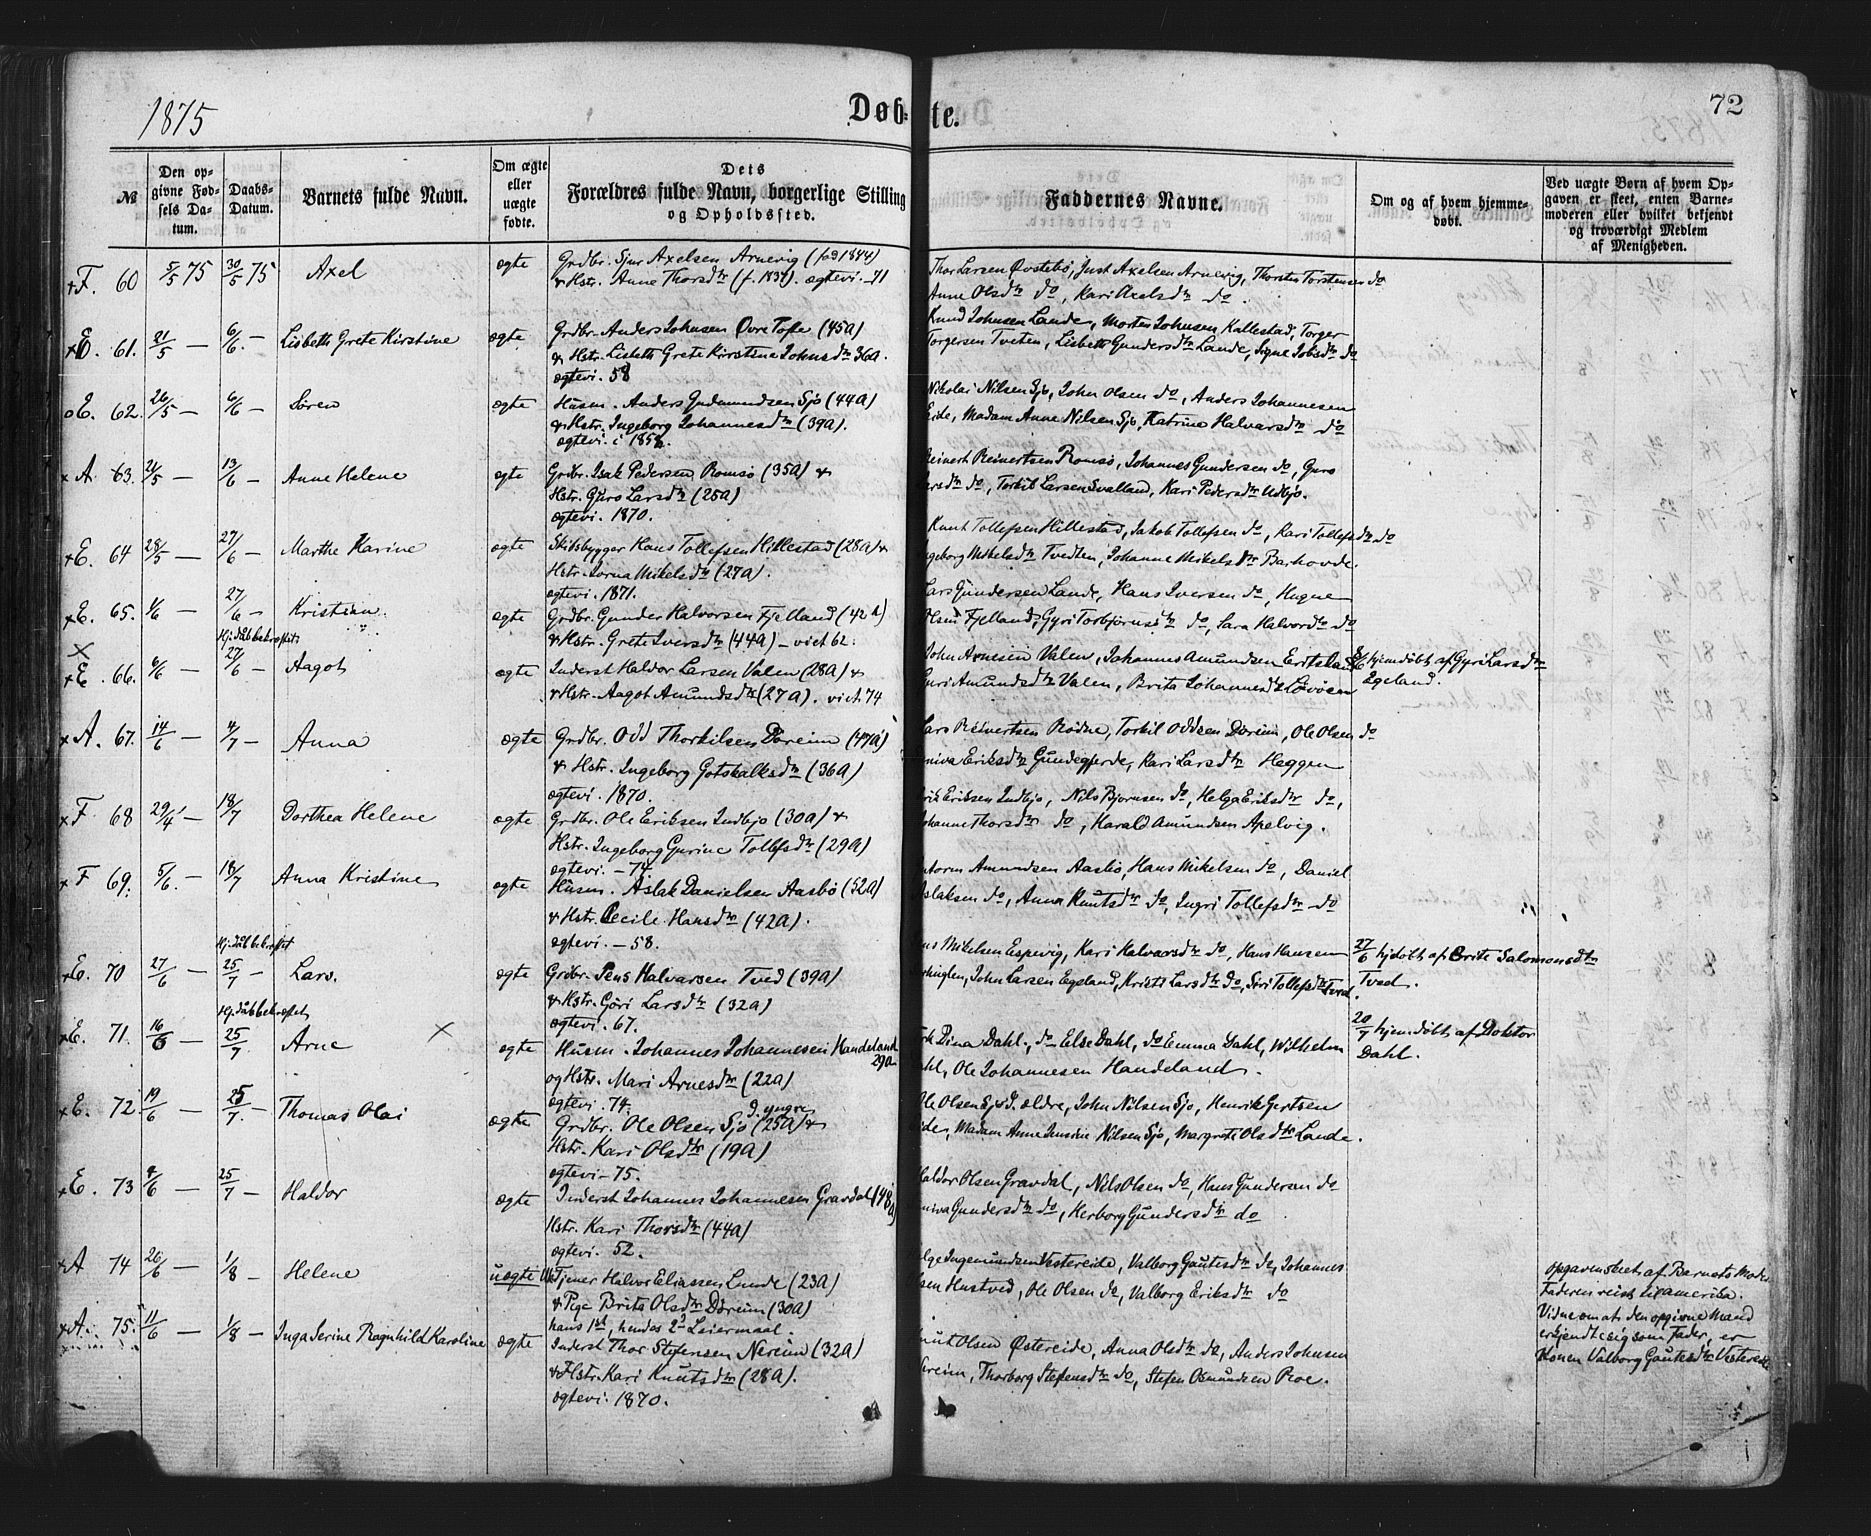 1875
Døbte.
72
№
Den opgivne Fødsels Datum.
Daabs-Datum.
Barnets fulde Navn.
Om ægte eller uægte fødte.
Dets Forældres fulde Navn, borgerlige Stilling og Opholdssted.
Faddernes Navne.
Om og af hvem hjemmedøbt.
Ved uægte Børn af hvem Opgaven er skeet, enten Barnemoderen eller hvilket bekjendt og troværdigt Medlem af Menigheden.
F. 60 5/5 75 30/5 75 Axel ægte Grdbr. Sjur Axelsen Arnevig (fød 1844)
& Hstr. Anne Thorsdtr (f. 1837). ægtevi. -71
Thor Larsen Øvstebø, Just Axelsen Arnevig, Thorsten Torstensen do
Anne Olsdtr do, Kari Axelsdtr do.
E. 61. 21/5 — 6/6 — Lisbeth Grete Kirstine ægte Grdbr. Anders Johnsen Øvre Tofte (45a)
& Hstr. Lisbeth Grete Kirstine Johnsdtr 36a.
ægtevi. 58
Knud Johnsen Lande, Morten Johnsen Kallestad, Torger
Torgersen Tveten, Lisbeth Gundersdtr Lande, Signe Jobsdtr do
E. 62. 26/5 — 6/6 — Søren ægte Husm. Anders Gudmundsen Sjo (44a)
& Hstr. Ingeborg Johannesdtr (39a).
ægtevi i 1858.
Nikolai Nilsen Sjo, John Olsen do, Anders Johannesen
Eide, Madam Anne Nilsen Sjo, Katrine Halvarsdtr do
A. 63. 21/5 — 13/6 — Anne Helene ægte Grdbr. Isak Pedersen Romsø (35a) &
Hstr. Guro Larsdtr (25a)
ægtevi. 1870.
Reinert Reinertsen Romsø, Johannes Gundersen do, Guro
Larsdtr do, Torkil Larsen Svalland, Kari Pedersdtr Udbjo.
E. 64 28/5 — 27/6 — Marthe Karine ægte Skibsbygger Hans Tollefsen Hillestad (28a) &
Hstr. Jorna Mikelsdtr (27a).
ægtevi. 1871.
Knut Tollefsen Hillestad, Jakob Tollefsen do, Kari Tollefsdtr do
Ingeborg Mikelsdtr Tvedten, Johanne Mikelsdtr Barhovde.
E. 65. 1/6 — 27/6 — Kristian ægte Grdbr. Gunder Halvorsen Fjelland (42a)
& Hstr. Grete Iversdtr (44a) — viet 62.
Lars Gundersen Lande, Hans Iversen do, Hugne
Olsen Fjelland, Gyri Torbjørnsdtr do, Sara Halvordtr do
Hj.dåb bekræftet
E. 66. 6/6 — 27/6 — Aagot ægte Inderst Haldor Larsen Valen (28a) &
& Hstr. Aagot Amundsdtr (27a). viet 74
John Arnesen Valen, Johannes Amundsen Eritsland
Guri Amundsdtr Valen, Brita Johannesdtr Løvåsen
8/6 hjemdøbt af Gyri Larsdtr
Egeland.
A. 67. 14/6 — 4/7 — Anna ægte Grdbr. Odd Thorkilsen Døreim (47a)
& Hstr. Ingeborg Gotskalksdtr (36a)
ægtevi. 1870.
Lars Reinertsen Rødne, Torkil Oddsen Døreim, Ole Olsen do
Eriksdtr Gundegjerde, Kari Larsdtr Heggen
F. 68 29/4 — 18/7 Dorthea Helene ægte Grdbr. Ole Eriksen Indbjo (30a) &
Hstr. Ingeborg Gurine Tollefsdtr (29a)
ægtevi. -74.
Erik Eriksen Indbjo, Nils Bjørnsen do, Helga Eriksdtr do,
Johanne Thorsdtr do, Harald Amundsen Apelvig.
F 69. 5/6. — 18/7 Anna Kristine ægte Husm. Aslak Danielsen Aasbø (52a)
& Hstr. Cecile Hansdtr (42a).
ægtevi. — 58.
Amundsen Aasbø, Hans Mikelsen do, Daniel
Aslaksen do, Anna Knutsdtr do, Ingri Tollefsdtr do
Hj.dåb bekræftet
E. 70 27/6 — 25/7 — Lars. ægte Grdbr. Jens Halvarsen Tved (39a)
& Hstr. Göri Larsdtr (32a)
ægtevi. 67.
Mikelsen Espevig, Kari Halvarsdtr do, Hans Hansen
John Larsen Egeland, Kristi Larsdtr do, Siri Tollefsdtr Tved.
27/6 hjdøbt af Brite Salomonsdtr
Tved.
Hj.dåb bekræftet
E. 71. 16/6 — 25/7 — Arne ægte Husm. Johannes Johannesen Handeland
29a
og Hstr. Mari Arnesdtr (22a)
ægtevi. 74.
Dina Dahl, do Else Dahl, do Emma Dahl, Wilhelm
Dahl, Ole Johannesen Handeland.
20/7 hjemdøbt af Doktor
Dahl.
E. 72 19/6 — 25/7 — Thomas Olai ægte Grdbr. Ole Olsen Sjo d. yngre (25a) &
Hstr. Kari Olsdtr (19a)
ægtevi — 75.
Ole Olsen Sjo d. ældre, John Nilsen Sjo, Henrik Gertsen
Eide, Madam Anne Nilsen Sjo, Margrete Olsdtr Lande.
E. 73 9/6 — 25/7 — Haldor ægte Inderst Johannes Johannesen Gravdal (48a)
Hstr. Kari Thorsdtr (44a)
ægtevi. 52.
Haldor Olsen Gravdal, Nils Olsen do, Hans Gundersen do
Gundersdtr do, Herborg Gundersdtr do
A 74 26/6 — 1/8 — Helene uægte Tjener Halvor Eliassen Lunde (23a)
& Pige Brita Olsdtr Døreim (30a)
hans 1st, hendes 2d Leiermaal.
Helge Ingemundsen Vestereide, Valborg Gautesdtr do, Johannes
Olsen Hustved, Ole Olsen do, Valborg Eriksdtr do
Opgaven skeet af Barnets Moder
Faderen reist til Amerika.
Vidne om at den opgivne Mand
erkjendte sig som Fader, er
Konen Valborg Gautesdtr Vestereide
A. 75. 11/6 — 1/8 — Inga Serine Ragnhild Karoline ægte Inderst Thor Stefensen Nereim (32a)
& Hstr. Kari Knutsdtr (28a).
ægtevi. 1870.
Knut Olsen Østereide, Anna Olsdtr do, Anders Johnsen
Nereim, Thorborg Stefensdtr do, Stefen Osmundsen Roe.